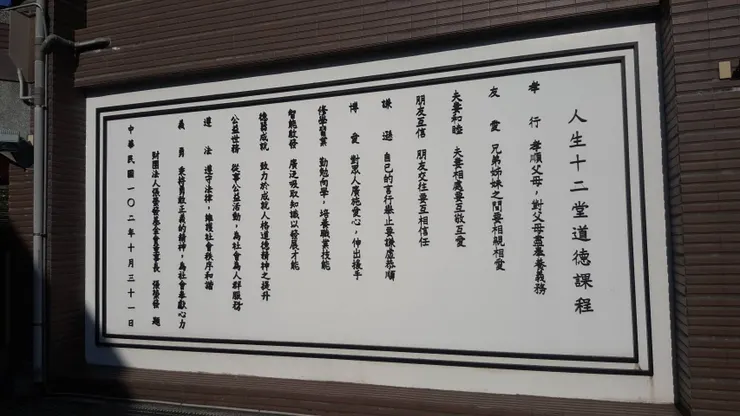 人生十二堂道德課程
孝行 孝順父母，對父母盡奉養義務
友愛 兄弟姊妹之間要相親相愛
夫妻和睦 夫妻相處要互敬互愛
朋友互信 朋友交往要互相信任
謙遜 自己的言行舉止要謙虛恭順
博愛 對眾人廣施愛心，伸出援手
修學習業 勤勉向學，培養職業技能
智能啟發 廣泛吸取知識以發展才能
德器成就 致力於成就人格道德精神之提升
公益世務 從事公益活動，為社會為人群服務
遵法 遵守法律，維護社會秩序和諧
義勇 秉持勇敢正義的精神，為社會奉獻心力
財團法人張榮發基金會董事長 張榮發 題
中華民國一０二年十月三十一日